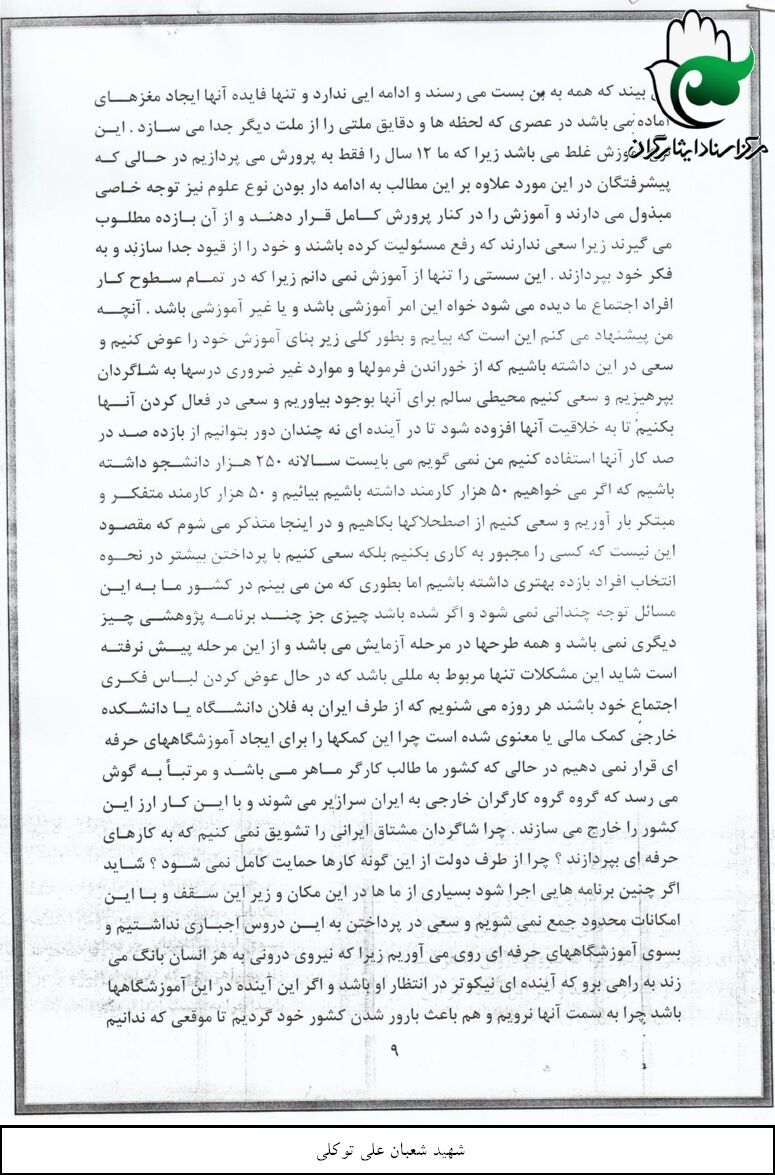 مرکز اسناد ایثارگران
بیند که همه به بن بست می رسند و ادامه ایی ندارد و تنها فایده آنها ایجاد مغزهای
آماده می باشد در عصری که لحظه ها و دقایق ملتی را از ملت دیگر جدا می سازد . این
آموزش غلط می باشد زیرا که ما ۱۲ سال را فقط به پرورش می پردازیم در حالی که
پیشرفتگان در این مورد علاوه بر این مطالب به ادامه دار بودن نوع علوم نیز توجه خاصی
مبذول می دارند و آموزش را در کنار پرورش کامل قرار دهند و از آن بازده مطلوب
می گیرند زیرا سعی ندارند که رفع مسئولیت کرده باشند و خود را از قیود جدا سازند و به
فکر خود بپردازند . این سستی را تنها از آموزش نمی دانم زیرا که در تمام سطوح کار
افراد اجتماع ما دیده می شود خواه این امر آموزشی باشد و یا غیر آموزشی باشد . آنچه
من پیشنهاد می کنم این است که بیایم و بطور کلی زیر بنای آموزش خود را عوض کنیم و
سعی در این داشته باشیم که از خوراندن فرمولها و موارد غیر ضروری درسها به شاگردان
بپرهیزیم و سعی کنیم محیطی سالم برای آنها بوجود بیاوریم و سعی در فعال کردن آنها
بکنیم تا به خلاقیت آنها افزوده شود تا در آینده ای نه چندان دور بتوانیم از بازده صد در
صد کار آنها استفاده کنیم من نمی گویم می بایست سالانه ۲۵۰ هزار دانشجو داشته
باشیم که اگر می خواهیم ۵۰ هزار کارمند داشته باشیم بیائیم و ۵۰ هزار کارمند متفکر و
مبتکر بار آوریم و سعی کنیم از اصطحلاکها بکاهیم و در اینجا متذکر می شوم که مقصود
این نیست که کسی را مجبور به کاری بکنیم بلکه سعی کنیم با پرداختن بیشتر در نحوه
انتخاب افراد بازده بهتری داشته باشیم اما بطوری که من می بینم در کشور ما به این
مسائل توجه چندانی نمی شود و اگر شده باشد چیزی جز چند برنامه پژوهشی چیز
دیگری نمی باشد و همه طرحها در مرحله آزمایش می باشد و از این مرحله پیش نرفته
است شاید این مشکلات تنها مربوط به مللی باشد که در حال عوض کردن لباس فکری
اجتماع خود باشند هر روزه می شنویم که از طرف ایران به فلان دانشگاه یا دانشکده
خارجی کمک مالی یا معنوی شده است چرا این کمکها را برای ایجاد آموزشگاههای حرفه
ای قرار نمی دهیم در حالی که کشور ما طالب کارگر ماهر می باشد و مرتباً به گوش
می رسد که گروه گروه کارگران خارجی به ایران سرازیر می شوند و با این کار ارز این
کشور را خارج می سازند . چرا شاگردان مشتاق ایرانی را تشویق نمی کنیم که به کارهای
حرفه ای بپردازند ؟ چرا از طرف دولت از این گونه کارها حمایت کامل نمی شود ؟ شاید
اگر چنین برنامه هایی اجرا شود بسیاری از ما ها در این مکان و زیر این سقف و با این
امکانات محدود جمع نمی شویم و سعی در پرداختن به این دروس اجباری نداشتیم و
بسوی آموزشگاههای حرفه ای روی می آوریم زیرا که نیروی درونی به هر انسان بانگ می
زند به راهی برو که آینده ای نیکوتر در انتظار او باشد و اگر این آینده در این آموزشگاهها
باشد چرا به سمت آنها نرویم و هم باعث بارور شدن کشور خود گردیم تا موقعی که ندانیم
۹
شهید شعبان علی توکلی